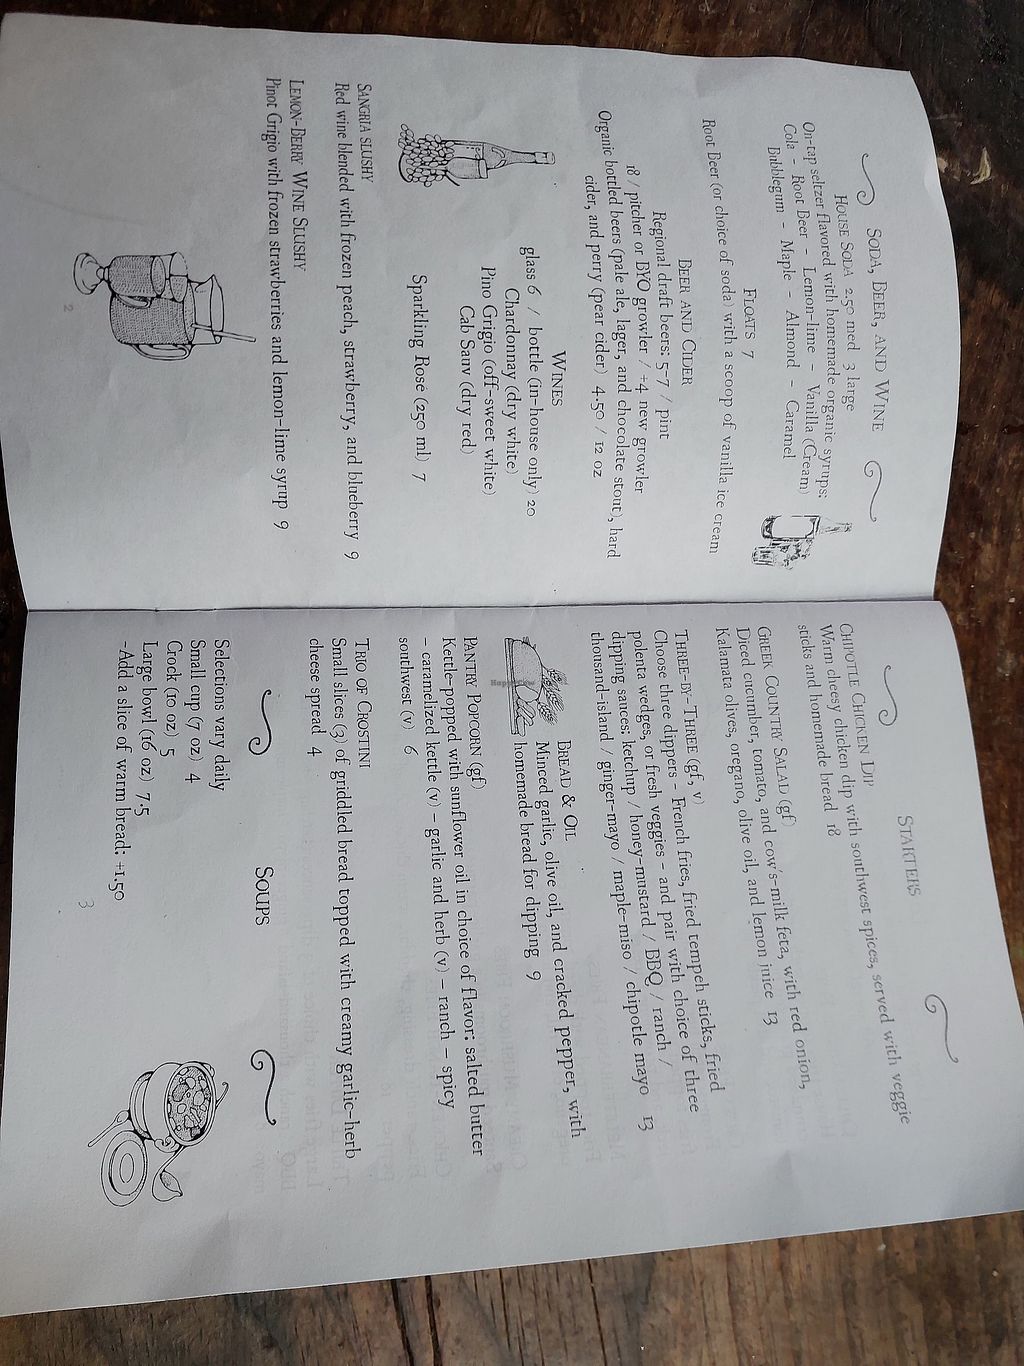 Soda, Beer, and Wine
House Soda 2.50 med 3 large
On-tap seltzer flavored with homemade organic syrups:
Cola – Root Beer – Lemon-lime – Vanilla (Cream)
Bubblegum – Maple – Almond – Caramel
Floats 7
Root Beer (or choice of soda) with a scoop of vanilla ice cream
Beer and Cider
Regional draft beers: 5-7 / pint
18 / pitcher or BYO growler / +4 new growler
Organic bottled beers (pale ale, lager, and chocolate stout), hard
cider, and perry (pear cider) 4.50 / 12 oz
Wines
glass 6 / bottle (in-house only) 20
Chardonnay (dry white)
Pino Grigio (off-sweet white)
Cab Sauv (dry red)
Sparkling Rosé (250 ml) 7
Sangria slushy
Red wine blended with frozen peach, strawberry, and blueberry 9
Lemon-Berry Wine Slushy
Pinot Grigio with frozen strawberries and lemon-lime syrup 9
2
Starters
Chipotle Chicken Dip
Warm cheesy chicken dip with southwest spices, served with veggie
sticks and homemade bread 18
Greek Country Salad (gf)
Diced cucumber, tomato, and cow's-milk feta, with red onion,
Kalamata olives, oregano, olive oil, and lemon juice 13
Three-by-Three (gf, v)
Choose three dippers – French fries, fried tempeh sticks, fried
polenta wedges, or fresh veggies – and pair with choice of three
dipping sauces: ketchup / honey-mustard / BBQ / ranch /
thousand-island / ginger-mayo / maple-miso / chipotle mayo 13
Bread & Oil
Minced garlic, olive oil, and cracked pepper, with
homemade bread for dipping 9
Pantry Popcorn (gf)
Kettle-popped with sunflower oil in choice of flavor: salted butter
– caramelized kettle (v) – garlic and herb (v) – ranch – spicy
southwest (v) 6
Trio of Crostini
Small slices (3) of griddled bread topped with creamy garlic-herb
cheese spread 4
Soups
Selections vary daily
Small cup (7 oz) 4
Crock (10 oz) 5
Large bowl (16 oz) 7.5
-Add a slice of warm bread: +1.50
3
HappyCow